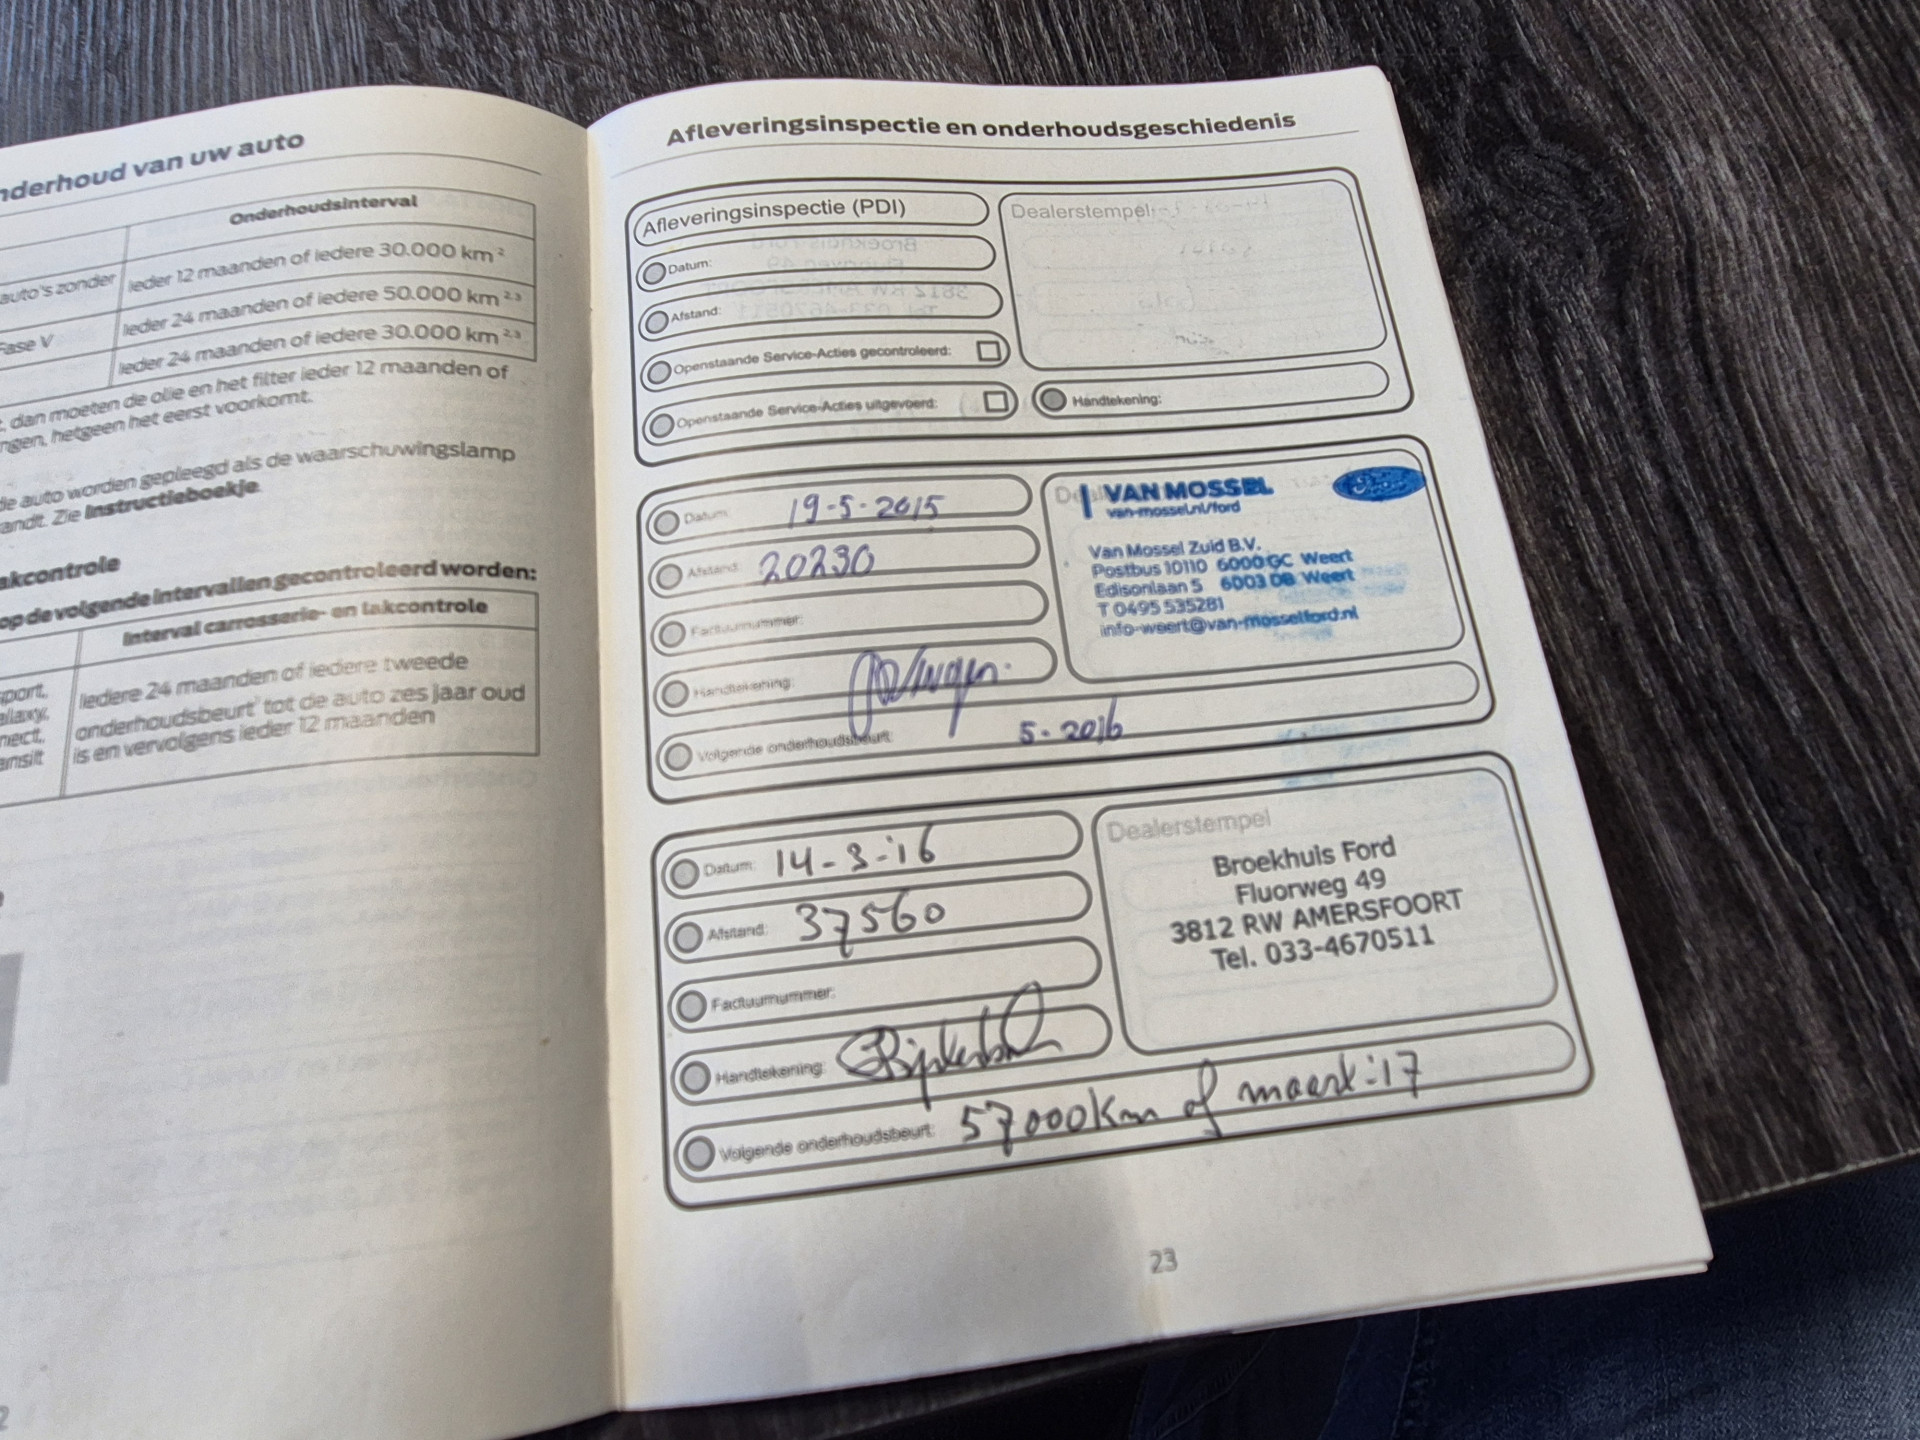 nderhoud van uw auto
Onderhoudsinterval
Ieder 12 maanden of iedere 30.000 km 2
auto's zonder
Ieder 24 maanden of iedere 50.000 km 2,3
Fase V
Ieder 24 maanden of iedere 30.000 km 2,3
t, dan moeten de olie en het filter ieder 12 maanden of
ngen, hetgeen het eerst voorkomt.
de auto worden gepleegd als de waarschuwingslamp
andt. Zie Instructieboekje.
akcontrole
op de volgende intervallen gecontroleerd worden:
Interval carrosserie- en lakcontrole
sport,
alaxy,
nect,
ansit
Iedere 24 maanden of iedere tweede
onderhoudsbeurt tot de auto zes jaar oud
is en vervolgens ieder 12 maanden
Afleveringsinspectie en onderhoudsgeschiedenis
Afleveringsinspectie (PDI)
Dealerstempel
Datum:
Afstand:
Openstaande Service-Acties gecontroleerd:
Openstaande Service-Acties uitgevoerd:
Handtekening:
Datum: 19-5-2015
Afstand: 20230
Factuurnummer:
Handtekening:
Volgende onderhoudsbeurt: 5-2016
VAN MOSSEL
van-mossel.nl/ford
Ford
Van Mossel Zuid B.V.
Postbus 10110 6000 GC Weert
Edisonlaan 5 6003 DB Weert
T 0495 535281
info-weert@van-mosselford.nl
Datum: 14-3-'16
Afstand: 37560
Factuurnummer:
Handtekening:
Volgende onderhoudsbeurt: 57000km of maart '17
Dealerstempel
Broekhuis Ford
Fluorweg 49
3812 RW AMERSFOORT
Tel. 033-4670511
23